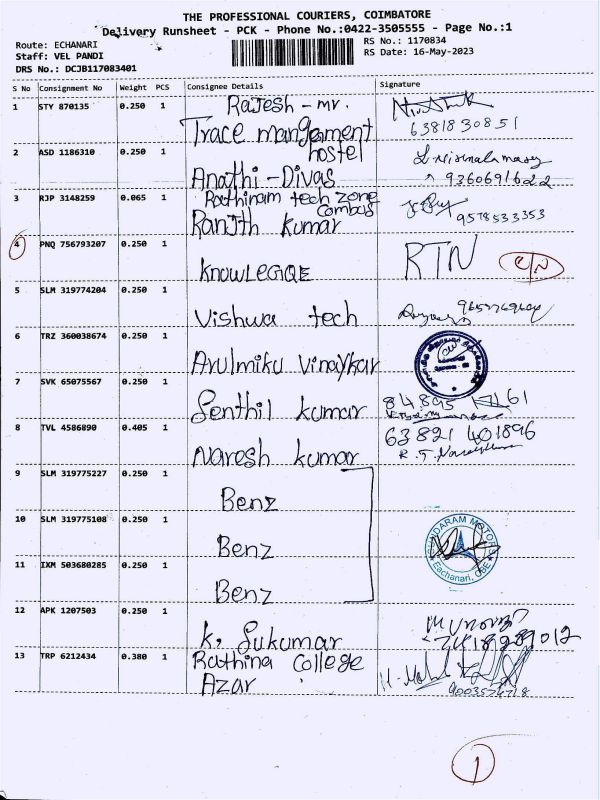 THE PROFESSIONAL COURIERS, COIMBATORE
Delivery Runsheet - PCK - Phone No.:0422-3505555 - Page No.:1
Route: ECHANARI
RS No.: 1170834
Staff: VEL PANDI
RS Date: 16-May-2023
DRS No.: DCJB117083401
S No Consignment No Weight PCS Consignee Details Signature
1 STY 870135 0.250 1 Rajesh - mr.
Trace mangement
hostel
6381830851
2 ASD 1186310 0.250 1
Anathi - Divas
9360691622
3 RJP 3148259 0.065 1 Rathinam tech zone
combus
Ranjth kumar
9578533353
4 PNQ 756793207 0.250 1 RTN
KNOWLEGQE
5 SLM 319774204 0.250 1
Vishwa tech
6 TRZ 360038674 0.250 1
Arulmiku Vinaykar
7 SVK 65075567 0.250 1
Senthil kumar
8 TVL 4586890 0.405 1 63821 401896
Naresh kumar
9 SLM 319775227 0.250 1
Benz
10 SLM 319775108 0.250 1
Benz
SUNDARAM MOTORS
Eachanari, CBE
11 IXM 503680285 0.250 1
Benz
12 APK 1207503 0.250 1
K. Sukumar
13 TRP 6212434 0.380 1 Rathina College
Azar
1